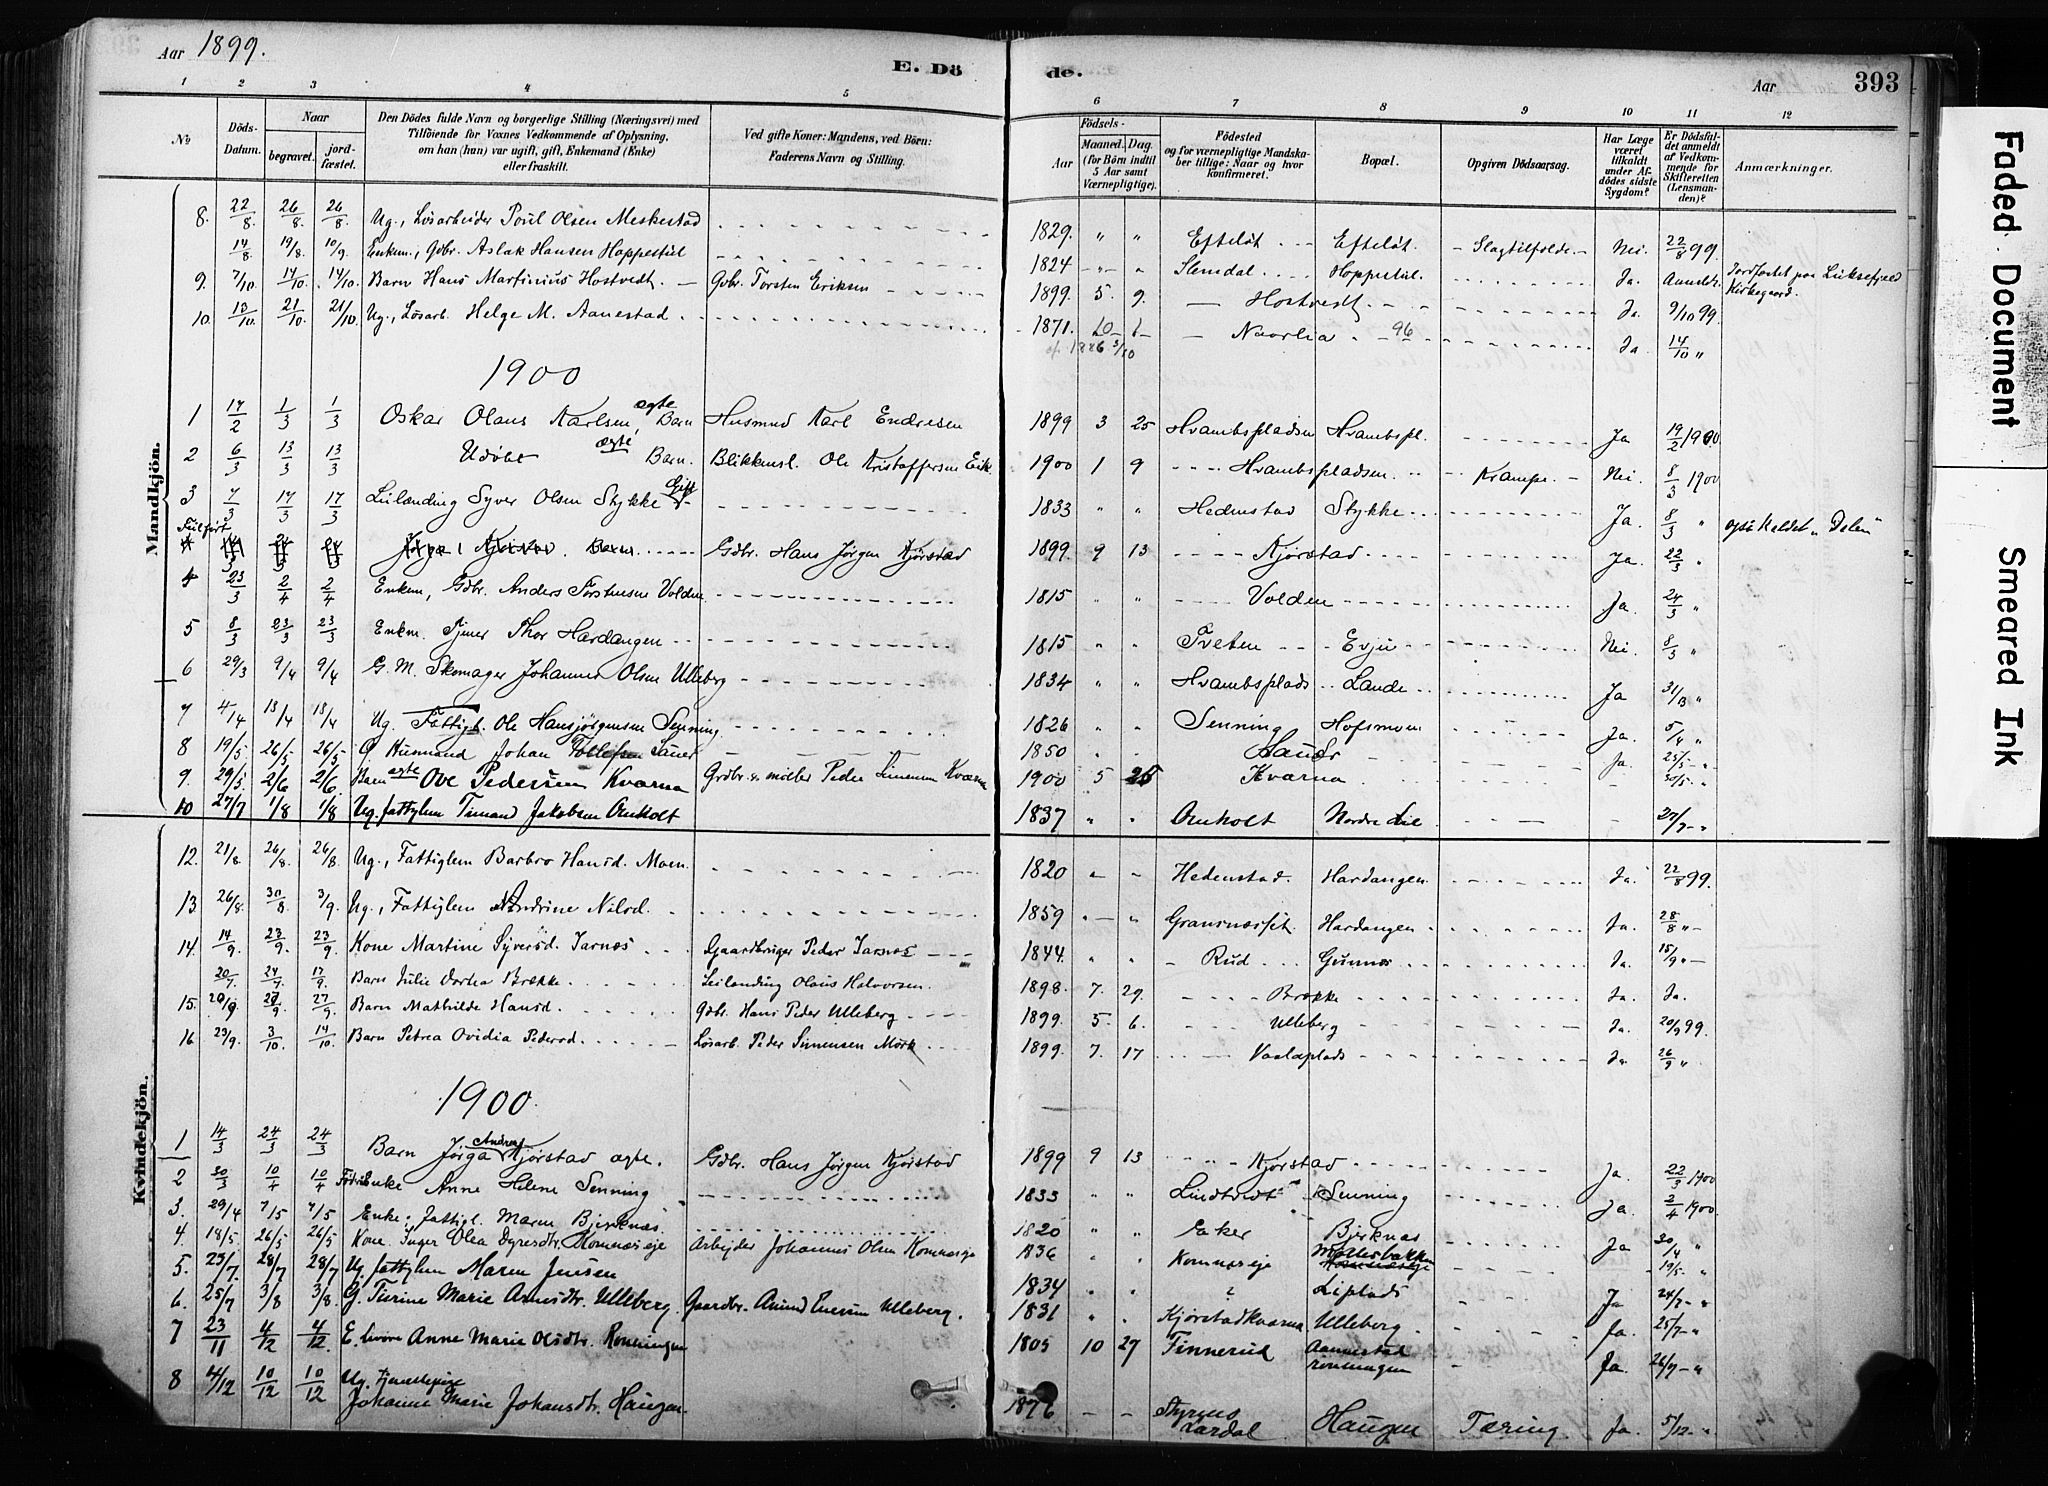 Aar 1899.
E. Döde.
Aar
393
1 2 3 4 5 6 7 8 9 10 11 12
No
Döds-Datum.
Naar
begravet.
jordfæstet.
Den Dödes fulde Navn og borgerlige Stilling (Næringsvei) med
Tilföiende for Voxnes Vedkommende af Oplysning,
om han (hun) var ugift, gift, Enkemand (Enke)
eller fraskilt.
Ved gifte Koner: Mandens, ved Börn:
Faderens Navn og Stilling.
Födsels-
Aar
Maaned. Dag.
(for Börn indtil
5 Aar samt
Værnepligtige).
Födested
og for værnepligtige Mandska-
ber tillige: Naar og hvor
konfirmeret.
Bopæl.
Opgiven Dödsaarsag.
Har Læge
været
tilkaldt
under Af-
dödes sidste
Sygdom?
Er Dödsfal-
det anmeldt
af Vedkom-
mende for
Skifteretten
(Lensman-
den)?
Anmærkninger.
Mandkjön.
8. 22/8 26/8 26/8 Ug., Løsarbeider Poul Olsen Meskestad 1829. " " Efteløt Efteløt. Slagtilfælde. Nei. 22/8 99.
14/8 19/8 10/9 Enkem., Gdbr. Aslak Hansen Hoppestiel 1824 " Slemdal Hoppestiel. Ja. Anmeldt. Jordfæstet paa Luksefjeld Kirkegaard.
9. 7/10 14/10 14/10 Barn Hans Martinius Hostvedt. Gbr. Torsten Eriksen 1899. 5. 9. Hostvedt Ja. 9/10 99.
10. 13/10 21/10 21/10 Ug., Løsarb. Helge M. Aanestad 1871. 10 1 Naarlia 96 Ja. 14/10 "
1886 3/10
1900
1 17/2 1/3 1/3 Oskar Olaus Karlsen, ægte Barn Husmnd Karl Endresen 1899 3 25 Hvambspladsen Hvambspl. Ja 19/2 1900.
2 6/3 13/3 13/3 Udøbt ægte Barn. Blikkensl. Ole Kristoffersen Eik. 1900 1 9 Hvambspladsen Krampe. Nei. 8/3 1900
3 7/3 17/3 17/3 Leilænding Syver Olsen Stykke Gift 1833 " " Hedenstad Stykke Ja 8/3 " også kaldet "Dalen"
Fulført
Barn Gdbr. Hans Jørgen Kjørstad 1899. 9 13 Kjørstad Ja. 22/3 "
4 23/3 2/4 2/4 Enkem, Gdbr. Anders Torstensen Volden 1815 " " Volden Ja. 24/3 "
5 8/3 23/3 23/3 Enkm. Tjener Thor Hardangen 1815 " " Tveten Evju Nei. 8/3 "
6 29/3 9/4 9/4 G. M. Skomager Johannes Olsen Ulleberg 1834 " " Hvambsplads Lande Ja 31/3 "
7 4/4 13/4 13/4 Ug. Fattigl. Ole Hansjørgensen Senning 1826 " Senning Hofsmoen Ja. 5/4 "
8 19/5 26/5 26/5 G Husmand Johan Tollefsen Sauer 1850 Sauer Ja. 23/5 "
9. 29/5 2/6 2/6 Barn ægte Ove Pedersen Kværna Grdbr. & møller Peder Simensen Kværna 1900 5 25 Kværna 30/5 "
10 27/7 1/8 1/8 Ug. fattiglem Timand Jakobsen Omholt 1837 " " Omholt Nordre Lie 27/7 "
Kvindekjön.
12. 21/8. 26/8. 26/8. Ug., Fattiglem Barbro Hansd. Moen 1820 " " Hedenstad. Hardangen. Ja. 22/8 99.
13. 26/8 30/8 3/9. Ug., Fattiglem Andrine Nilsd. 1859 " " Gransnæsset. Hardangen Ja. 28/8 "
14. 14/9. 23/9. 23/9. Kone Martine Syversd. Jarnæs Gaardbruger Peder Jarnæs 1844. " " Rud Gunnæs Ja. 15/9 "
20/7. 24/7. 17/9. Barn Julie Dorthea Brække. Leilending Olaus Halvorsen. 1898. 7. 29. Brække Ja. Ja.
15. 20/9 27/9. 27/9 Barn Mathilde Hansd. Gdbr. Hans Peder Ulleberg 1899. 5. 6. Ulleberg Ja. 20/9 99.
16 23/9. 3/10. 14/10. Barn Petrea Ovidia Pedersd. Løsarb. Peder Simensen Mørk 1899. 7. 17 Vaalaplads Ja 26/9 "
1900.
1 14/3 24/3 24/3 Barn Jørga Andrea Kjørstad ægte. Gdbr. Hans Jørgen Kjørstad 1899 9 13 Kjørstad Ja. 22/3 1900
2 30/3 10/4 10/4 Enke Anne Helene Senning 1833 " " Lindtvedt Senning Ja. 2/4 1900.
3. 29/4 7/5 7/5 Enke, fattigl. Maren Bjerknæs 1820 " Eker Bjerknæs Ja 30/4 "
4. 18/5 26/5 26/5 Kone. Inger Olea Dyresdtr. Komnæseje Arbejder Johannes Olsen Komnæseje 1836 " Komnæseje Møllerbakken 19/5 "
5. 23/7. 28/7 28/7 Ug. fattiglem Maren Jensen 1834 " " ? Liplads Ja 24/7 "
6. 25/7 3/8 3/8 G. Turine Marie Arnesdtr. Ulleberg. Gaardbr. Amund Enersen Ulleberg. 1831 " Kjørstadkværna Ulleberg. Ja. 25/7 "
7 23/11 4/12 4/12. E. Anne Marie Olsdtr. Rønningen 1805 10 27 Finnerud Aannestad rønningen Ja. 26/7 "
8 4/12 10/12 10/12 Ug. Tjenestepige Johanne Marie Johansdtr. Haugen. 1876 Styrnes Lardal Haugen Tæring. Ja. 5/12 "
Faded Document
Smeared Ink